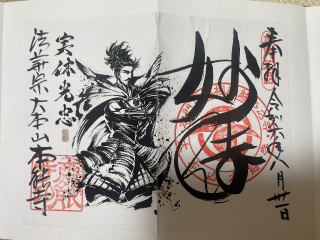 奉拝 令和六年八月卅一日
妙法
実休光忠
法華宗大本山 本能寺